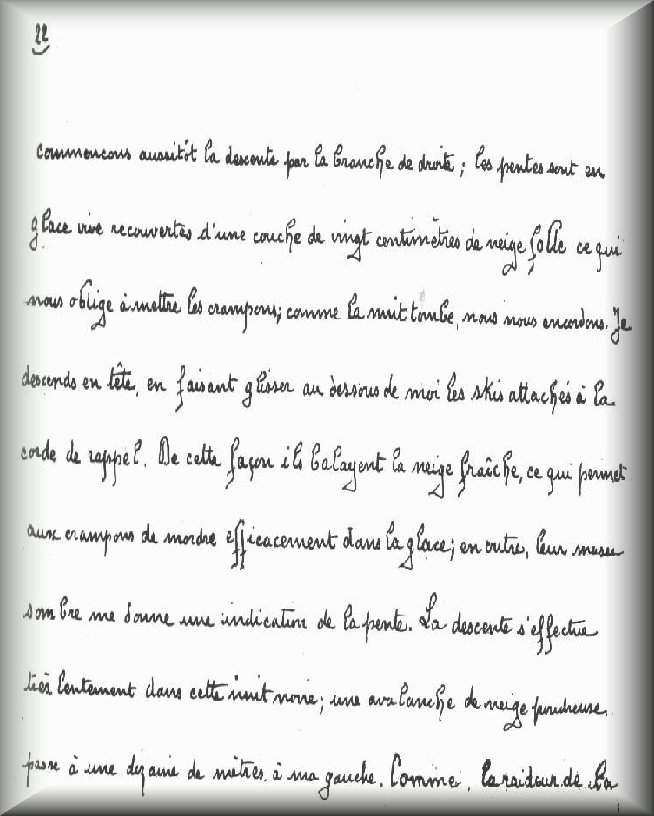 22
commencons aussitôt la descente par la branche de droite ; les pentes sont en
glace vive recouvertes d'une couche de vingt centimètres de neige folle ce qui
nous oblige à mettre les crampons ; comme la nuit tombe, nous nous encordons. Je
descends en tête, en faisant glisser au dessous de moi les skis attachés à la
corde de rappel. De cette façon ils balayent la neige fraîche, ce qui permet
aux crampons de mordre efficacement dans la glace ; en outre, leur masse
sombre me donne une indication de la pente. La descente s'effectue
très lentement dans cette nuit noire ; une avalanche de neige poudreuse
passe à une dizaine de mètres à ma gauche. Comme, la raideur de la